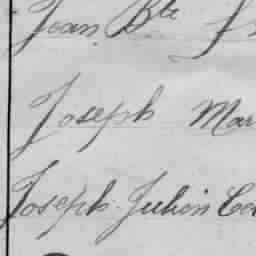 Jean Bte
Joseph Mar
Joseph Julien Co